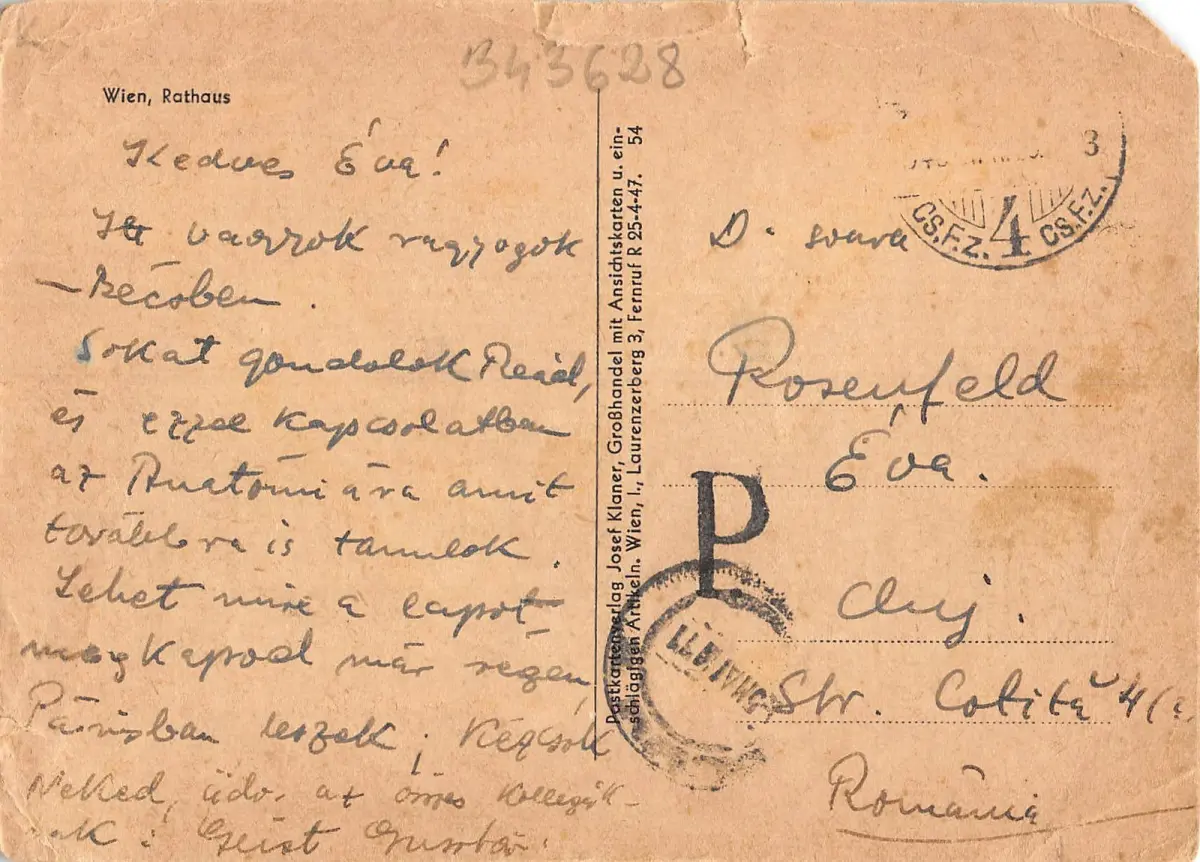 B43628
Wien, Rathaus
Kedves Éva!
Itt vagyok ragyogok
– Bécsben.
Sokat gondolok Reád,
és ezzel kapcsolatban
az Anatómiára amit
továbbra is tanulok.
Lehet mire a lapot
megkapod már régen
Párisban leszek, Kézcsók
Neked, üdv. az összes kollegák-
nak: Geist Gusztáv.
Postkartenverlag Josef Klaner, Großhandel mit Ansichtskarten u. ein-
schlägigen Artikeln. Wien, I., Laurenzerberg 3, Fernruf R 25-4-47. 54
3
CS.F.Z. 4 CS.F.Z.
D. soara
Rosenfeld
Éva.
P
Cluj.
MAI
Str. Colită 4
România